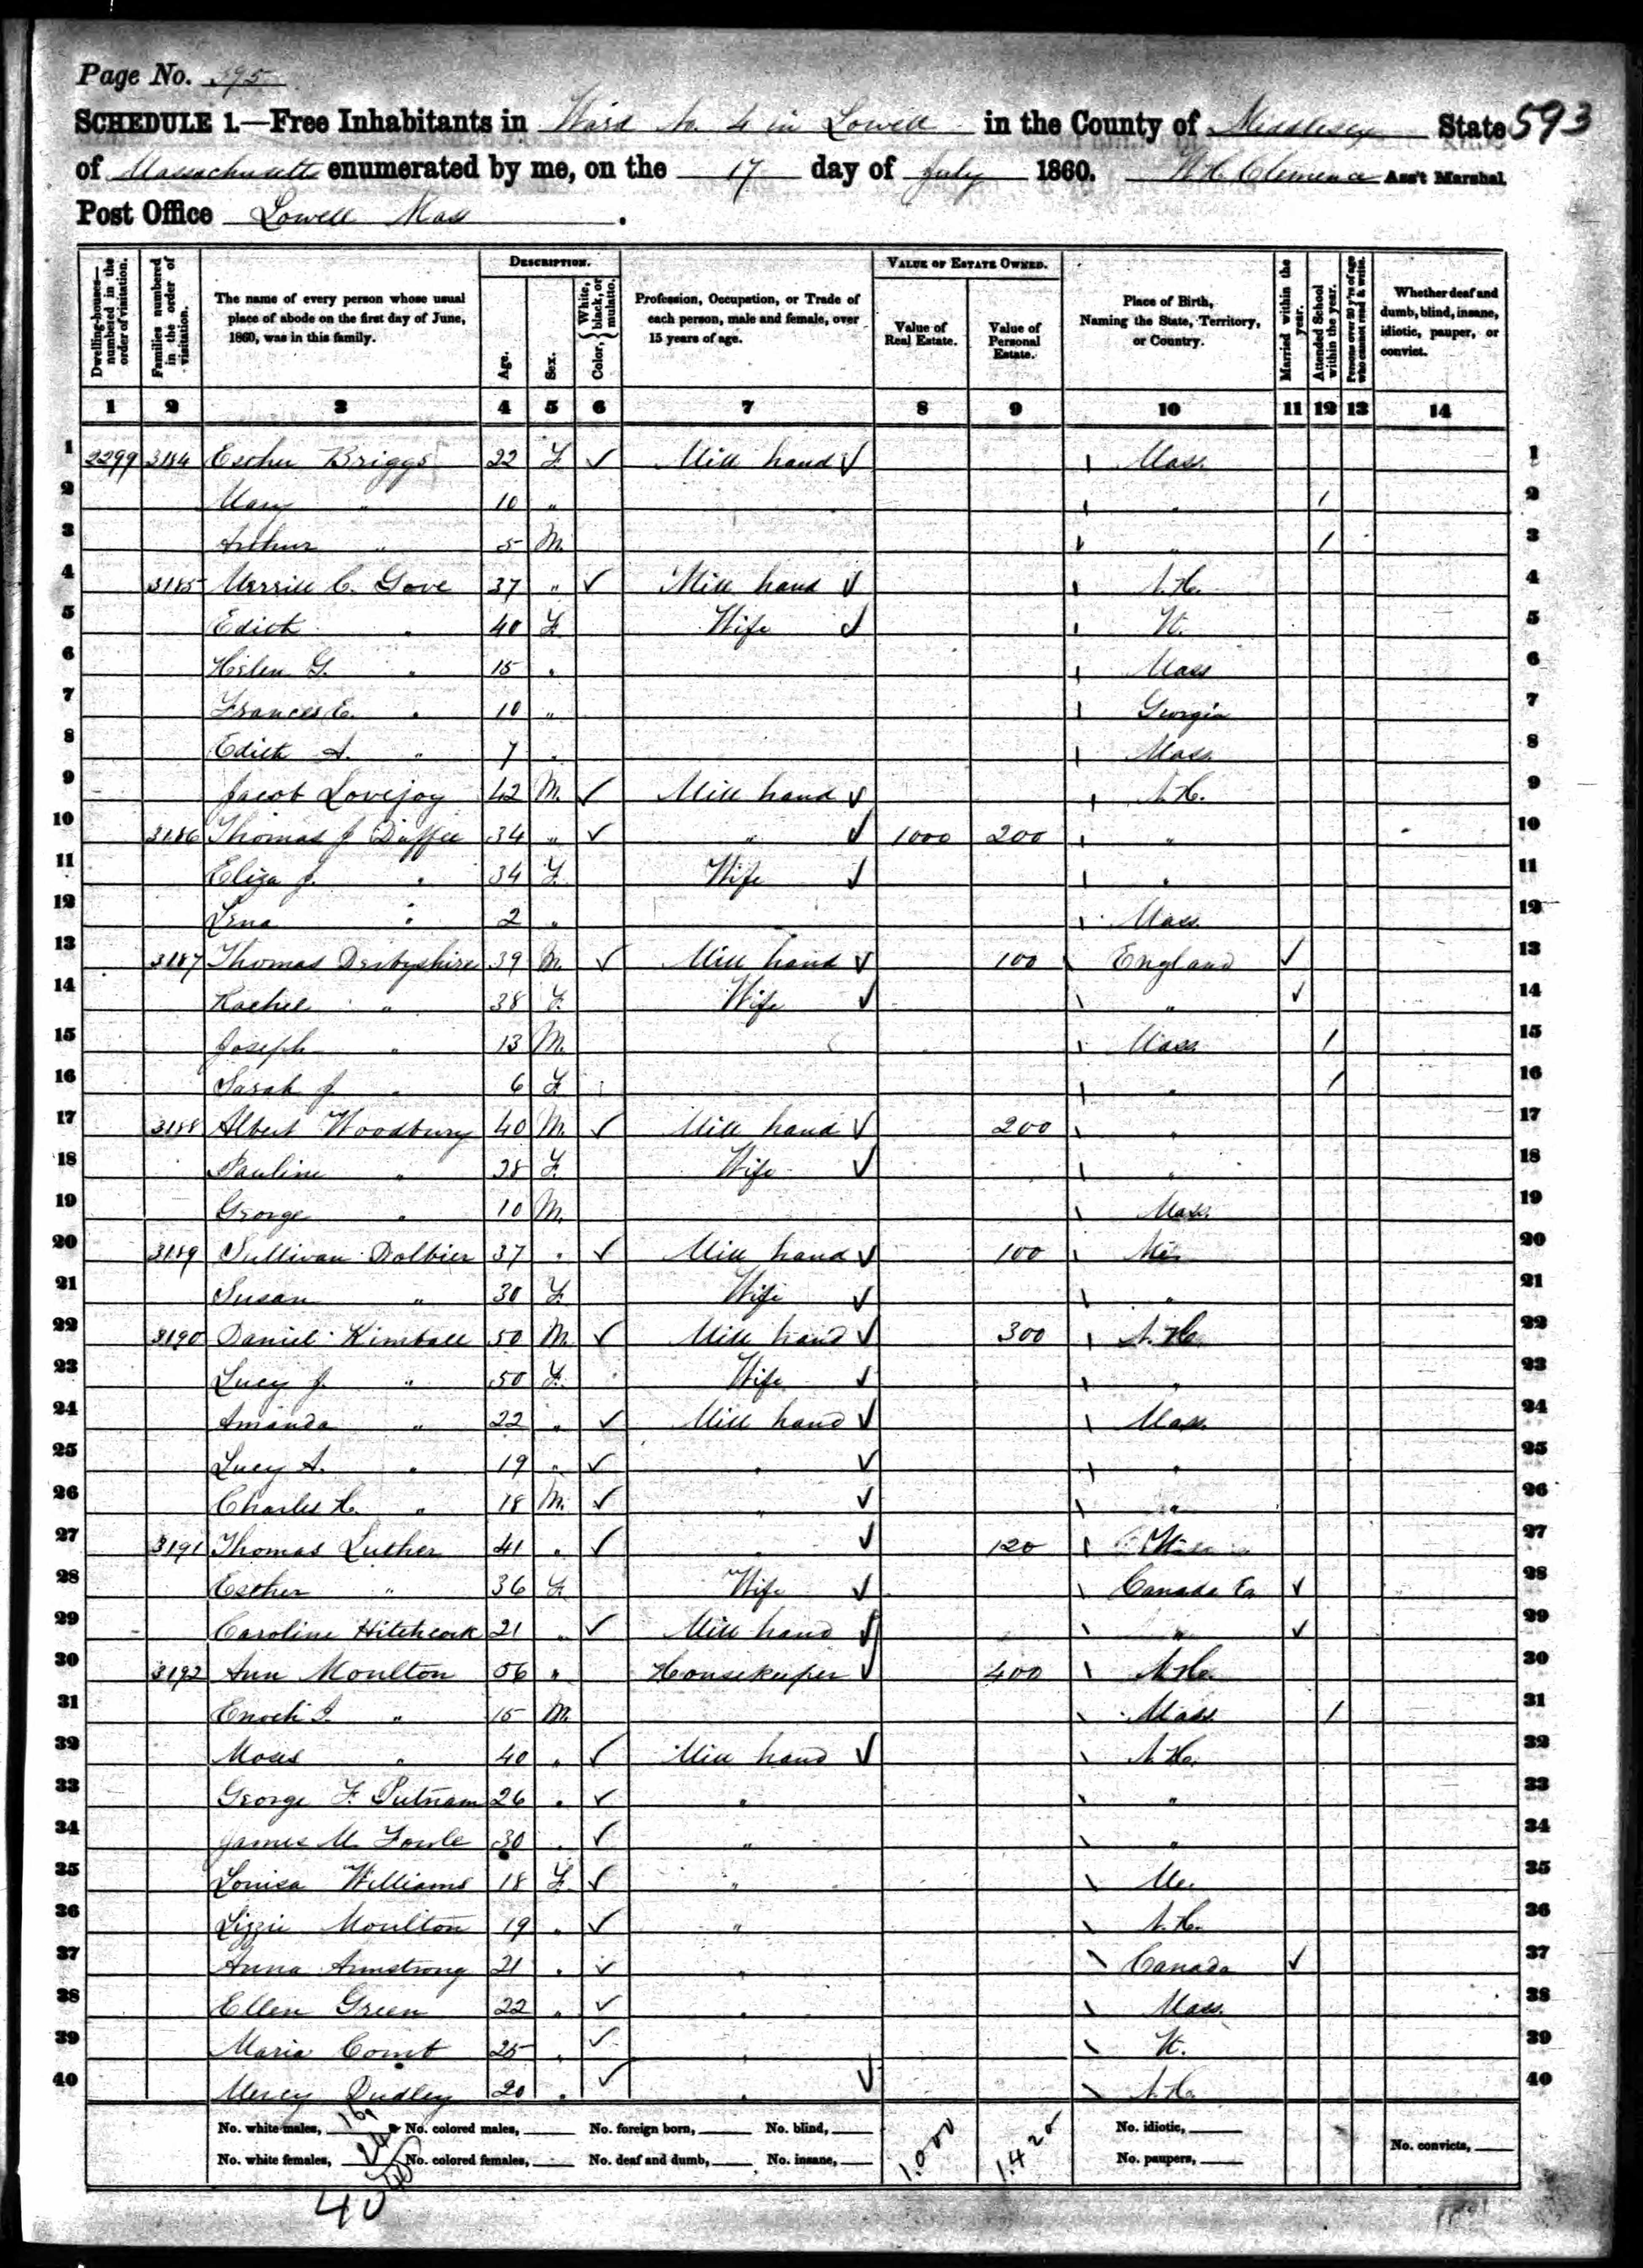 Page No. 395
SCHEDULE 1.—Free Inhabitants in Ward No. 4 in Lowell in the County of Middlesex State 593
of Massachusetts enumerated by me, on the 17 day of July 1860. W. H. Clemence Ass't Marshal
Post Office Lowell Mass.
Dwelling-houses—numbered in the order of visitation. Families numbered in the order of visitation. The name of every person whose usual place of abode on the first day of June, 1860, was in this family. DESCRIPTION. Age. Sex. Color, White, black, or mulatto. Profession, Occupation, or Trade of each person, male and female, over 15 years of age. VALUE OF ESTATE OWNED. Value of Real Estate. Value of Personal Estate. Place of Birth, Naming the State, Territory, or Country. Married within the year. Attended School within the year. Persons over 20 y'rs of age who cannot read & write. Whether deaf and dumb, blind, insane, idiotic, pauper, or convict.
1 2 3 4 5 6 7 8 9 10 11 12 13 14
1 2299 3184 Esther Briggs 22 F ✓ Mill hand ✓ Mass. 1
2 Mary " 10 " " / 2
3 Arthur " 5 M. " / 3
4 3185 Merrill C. Gove 37 " ✓ Mill hand ✓ N.H. 4
5 Edith " 40 F. Wife ✓ Vt. 5
6 Helen G. " 15 " Mass 6
7 Frances E. " 10 " Georgia 7
8 Edith A. " 7 " Mass. 8
9 Jacob Lovejoy 42 M. ✓ Mill hand ✓ N.H. 9
10 3186 Thomas J Duffee 34 " ✓ " ✓ 1000 200 " 10
11 Eliza J. " 34 F. Wife ✓ " 11
12 Lena " 2 " Mass. 12
13 3187 Thomas Derbyshire 39 M. ✓ Mill hand ✓ 100 England ✓ 13
14 Rachel " 38 F. Wife ✓ " ✓ 14
15 Joseph " 13 M. Mass. / 15
16 Sarah J " 6 F. " / 16
17 3188 Albert Woodbury 40 M. ✓ Mill hand ✓ 200 " 17
18 Pauline " 28 F. Wife ✓ " 18
19 George " 10 M. Mass. 19
20 3189 Sullivan Dolbier 37 " ✓ Mill hand ✓ 100 Me. 20
21 Susan " 30 F. Wife ✓ " 21
22 3190 Daniel Kimball 50 M. ✓ Mill hand ✓ 300 N.H. 22
23 Lucy J. " 50 F. Wife ✓ " 23
24 Amanda " 22 " ✓ Mill hand ✓ Mass. 24
25 Lucy A. " 19 " ✓ " ✓ " 25
26 Charles H. " 18 M. ✓ " ✓ " 26
27 3191 Thomas Luther 41 " ✓ " ✓ 120 27
28 Esther " 36 F. Wife ✓ Canada Ea ✓ 28
29 Caroline Hitchcock 21 " ✓ Mill hand ✓ " ✓ 29
30 3192 Ann Moulton 56 " Housekeeper ✓ 400 N.H. 30
31 Enoch I. " 15 M. Mass / 31
32 Moses " 40 " ✓ Mill hand ✓ N.H. 32
33 George F. Putnam 26 " ✓ " " 33
34 James M. Fowle 30 " ✓ " " 34
35 Louisa Williams 18 F. ✓ " Me. 35
36 Lizzie Moulton 19 " ✓ " N.H. 36
37 Anna Armstrong 21 " ✓ " Canada ✓ 37
38 Ellen Green 22 " ✓ " Mass. 38
39 Maria Comb 25 " ✓ " Vt. 39
40 Mercy Dudley 20 " ✓ " ✓ N.H. 40
No. white males, 16 No. colored males, No. foreign born, No. blind, 1.000 1.420 No. idiotic,
No. white females, 24 No. colored females, No. deaf and dumb, No. insane, No. paupers, No. convicts,
40